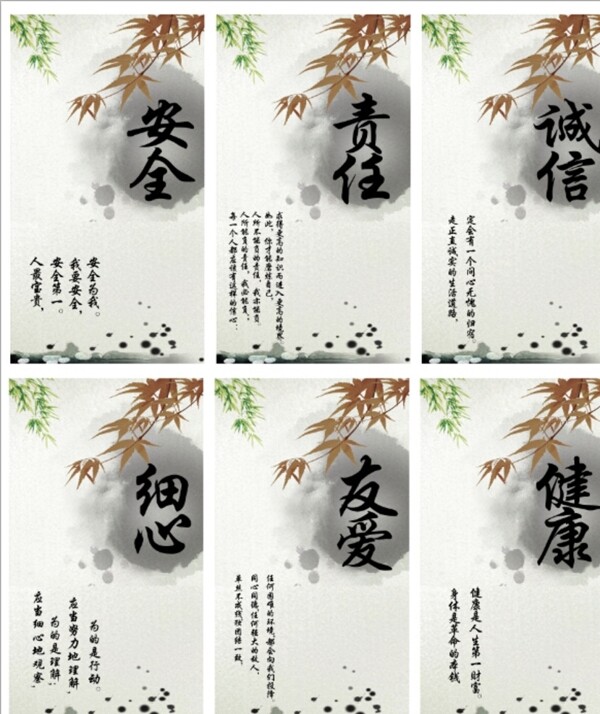 安全
人最富贵，
安全第一。
我要安全，
安全为我。
责任
每一个人都应该有这样的信心：
人所能负的责任，我必能负；
人所不能负的责任，我亦能负。
如此，你才能磨练自己，
求得更高的知识而进入更高的境界。
诚信
走正直诚实的生活道路，
定会有一个问心无愧的归宿。
细心
应当细心地观察，
为的是理解；
应当努力地理解，
为的是行动。
友爱
团结一致，
同心同德，任何强大的敌人，
任何困难的环境，都会向我们投降。
健康
身体是革命的本钱
健康是人生第一财富。